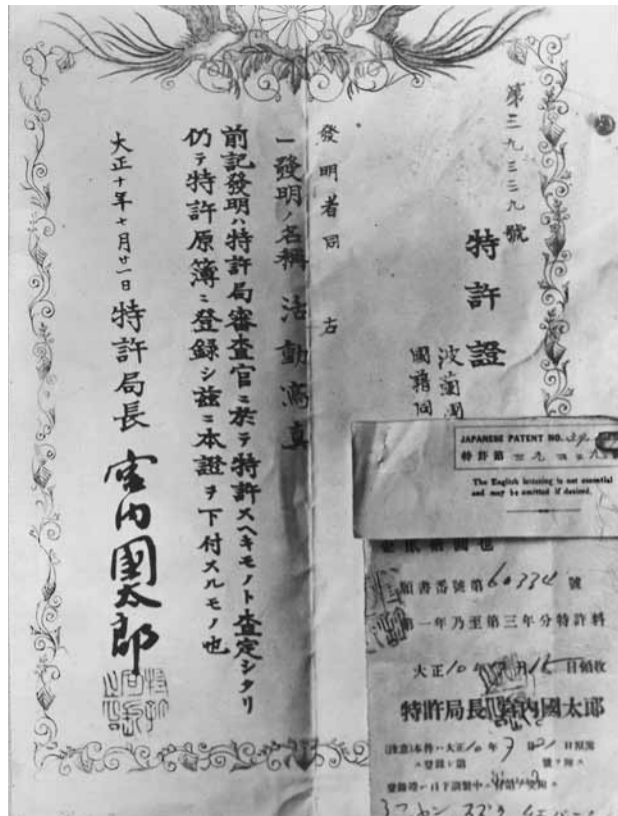 第三九三三九號
特許證
波蘭國
國籍同
發明者同右
一發明ノ名稱 活動寫真
前記發明ハ特許局審査官ニ於テ特許スヘキモノト査定シタリ
仍テ特許原簿ニ登録シ茲ニ本證ヲ下付スルモノ也
大正十年七月廿一日
特許局長 宮内國太郎
JAPANESE PATENT NO.
特許第
The English lettering is not essential
and may be omitted if desired.
願書番號第60334號
第一年乃至第三年分特許料
大正10年7月15日領收
特許局長宮内國太郎